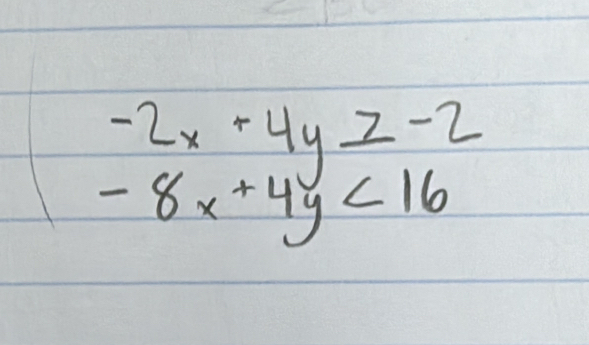 -2x + 4y ≥ -2
-8x + 4y < 16